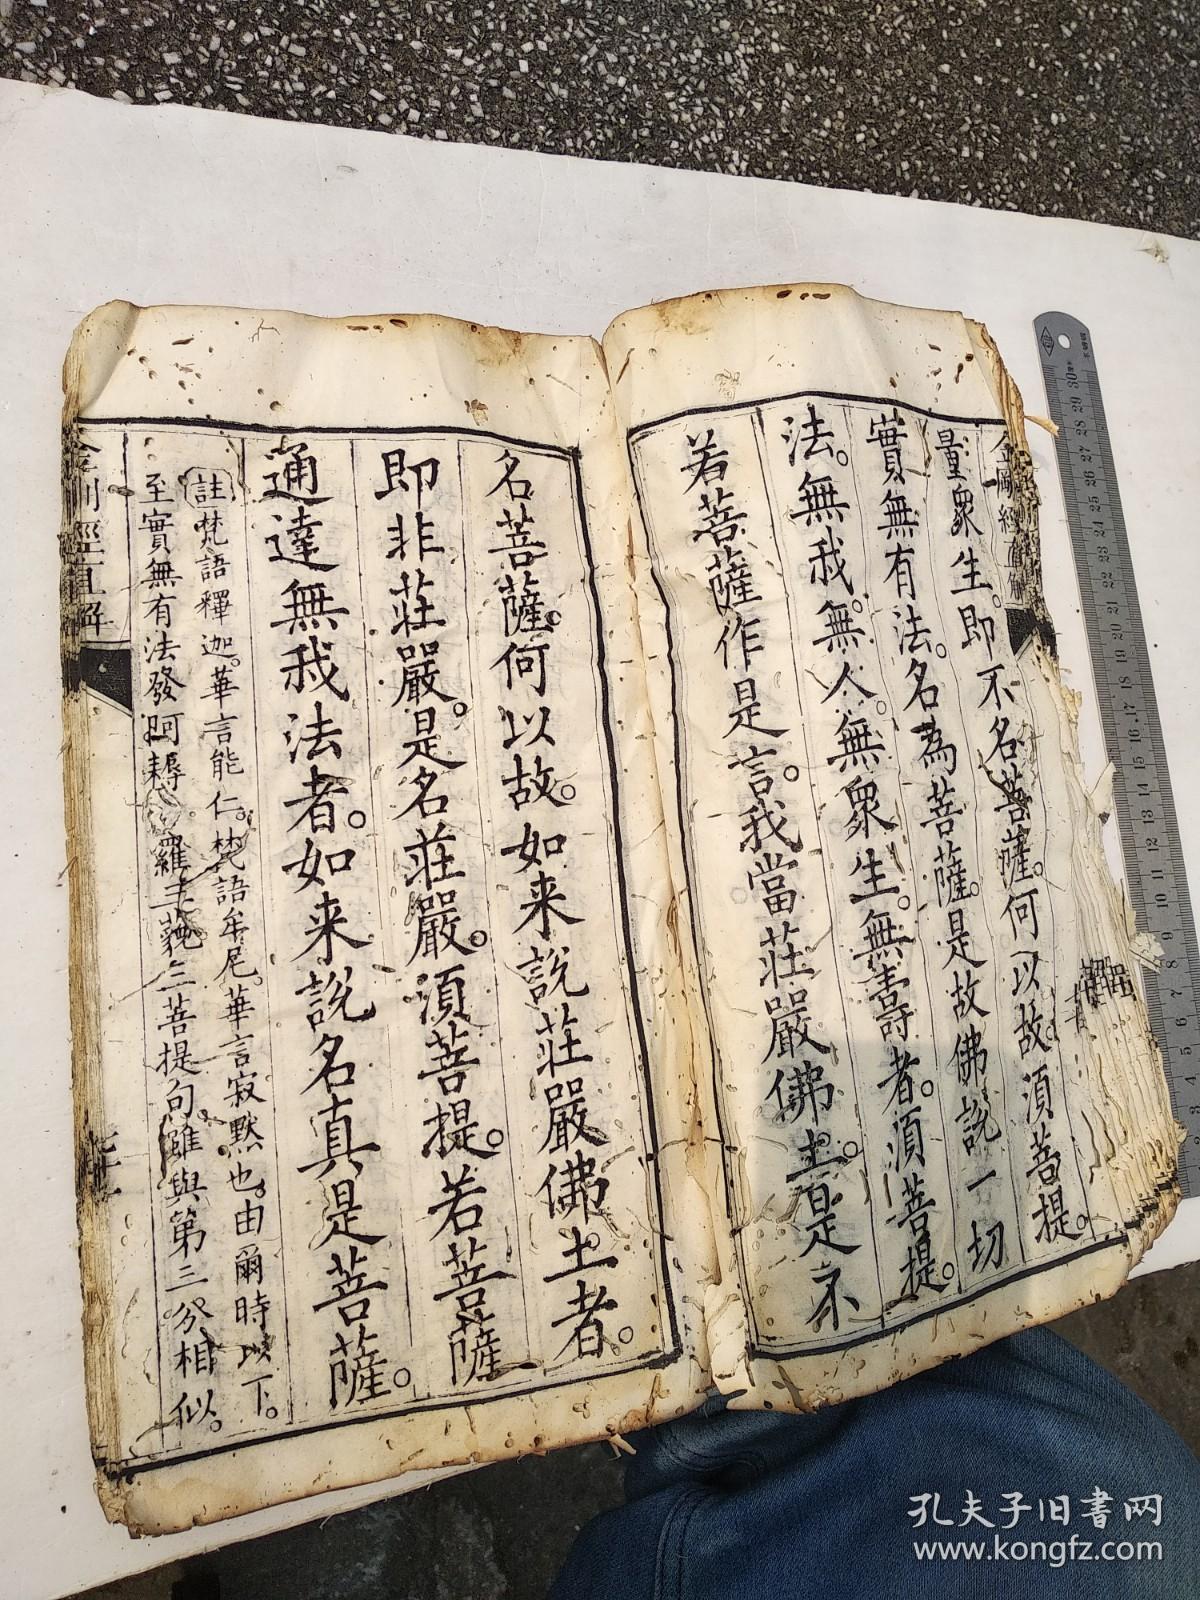 金剛經直解
量衆生。即不名菩薩。何以故。湏菩提。
實無有法。名為菩薩。是故佛說一切
法。無我。無人。無衆生。無壽者。湏菩提。
若菩薩作是言。我當莊嚴佛土。是不
名菩薩。何以故。如来說莊嚴佛土者。
即非莊嚴。是名莊嚴。湏菩提。若菩薩
通達無我法者。如来說名真是菩薩。
註梵語釋迦。華言能仁。梵語牟尼。華言寂默也。由爾時以下。
至實無有法發阿耨 羅三藐三菩提句。雖與第三分相似。
金剛經直解
孔夫子旧書网
www.kongfz.com